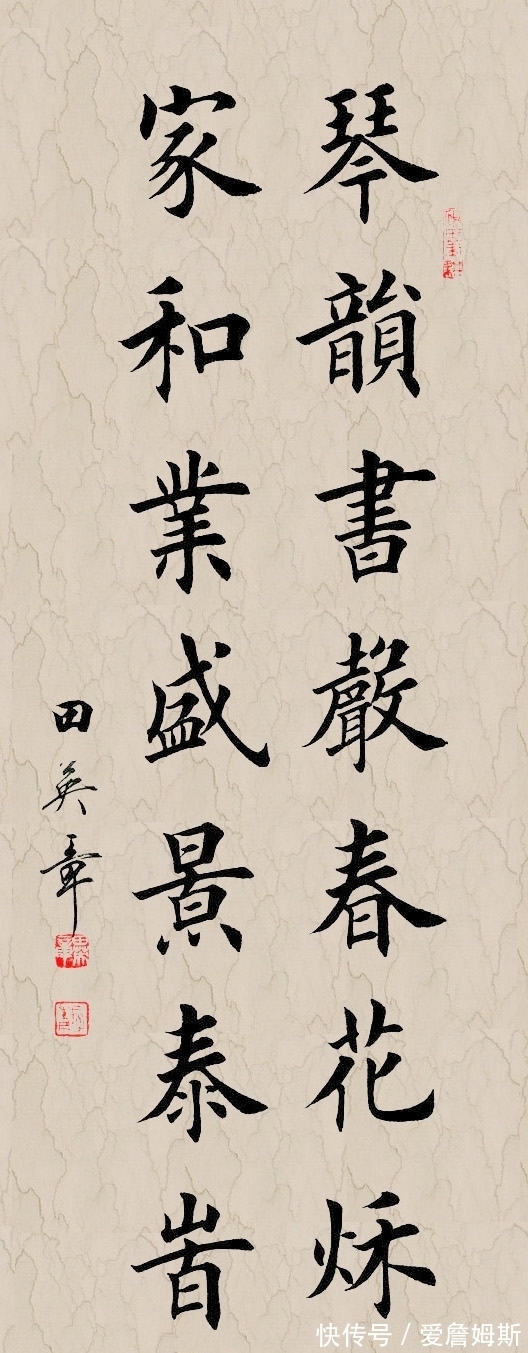 琴韻書聲春花秌
家和業盛景泰峕
田英章
快传号 / 爱詹姆斯